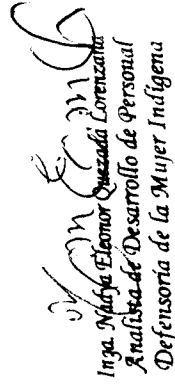 Inga. Nadja Eleonor Quezada Lorenzana
Analista de Desarrollo de Personal
Defensoría de la Mujer Indígena